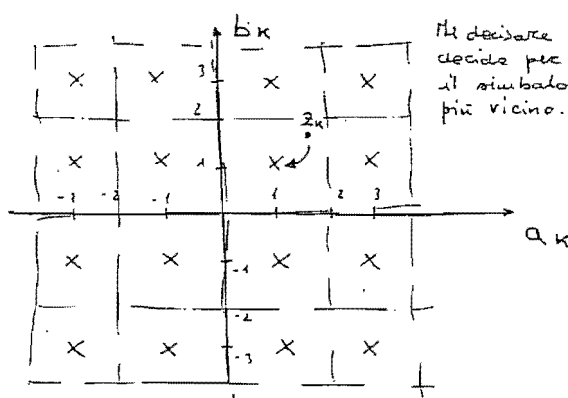 bK
Il decisore
decide per
il simbolo
più vicino.
3
2
zK
1
-3 -2 -1 1 2 3
aK
-1
-2
-3